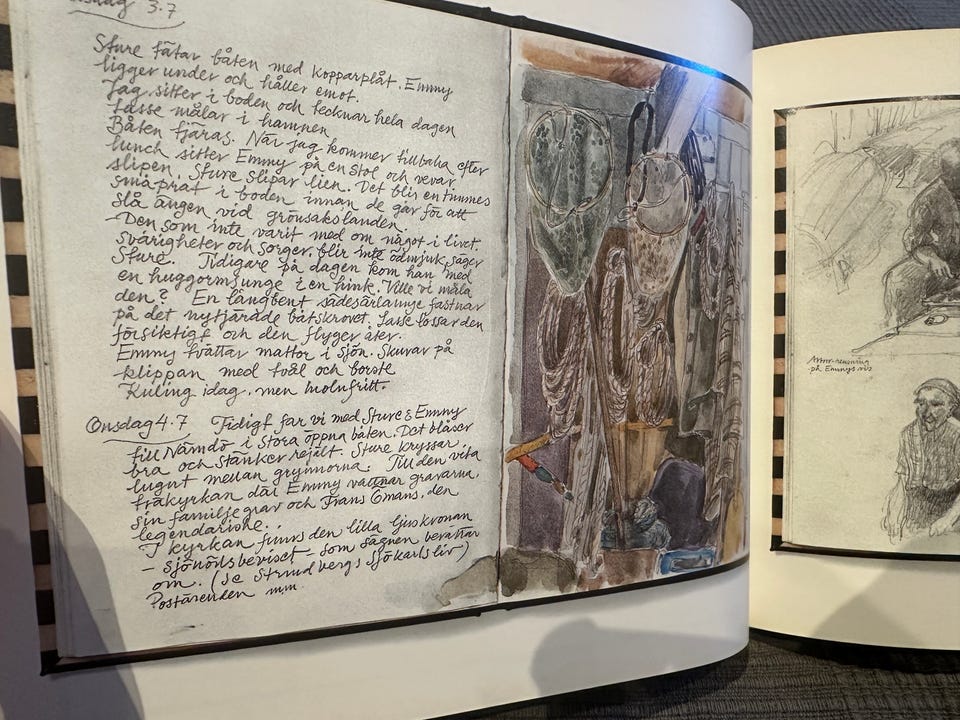 sdag 3.7
Sture tätar båten med kopparplåt. Emmy
ligger under och håller emot.
Jag sitter i boden och tecknar hela dagen
Lasse målar i hamnen
Båten tjäras. När jag kommer tillbaka efter
lunch sitter Emmy på en stol och vevar
slipen. Sture slipar lien. Det blir en timmes
småprat i boden innan de går för att
slå ängen vid grönsakslanden.
- Den som inte varit med om något i livet,
svårigheter och sorger, blir inte ödmjuk, säger
Sture. Tidigare på dagen kom han med
en huggormsunge i en hink. Ville vi måla
den? En långbent sädesärlaunge fastnar
på det nytjärade båtskrovet. Lasse lossar den
försiktigt och den flyger åter.
Emmy tvättar mattor i sjön. Skurar på
klippan med tvål och borste
Kuling idag, men molnfritt.
Onsdag 4.7 Tidigt far vi med Sture & Emmy
till Nämdö i stora öppna båten. Det blåser
bra och stänker rejält. Sture kryssar
lugnt mellan grynnorna. Till den vita
träkyrkan där Emmy vattnar gravarna,
sin familjegrav och Frans Emans, den
legendariske.
I kyrkan finns den lilla ljuskronan
- sjönödsbeviset - som sägnen berättar
om. (Se Strindbergs Sjökarlsliv)
Postärenden mm
på Emmys vis